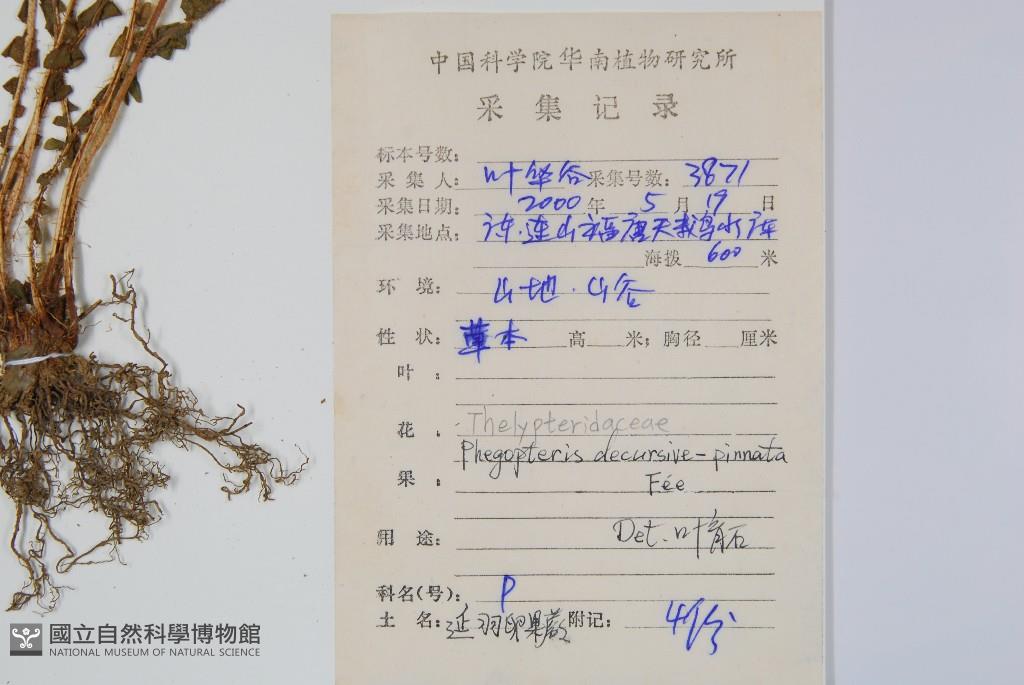 中国科学院华南植物研究所
采集记录
标本号数:
采集人: 叶华谷 采集号数: 3871
采集日期: 2000年 5月 19日
采集地点: 连山福唐天
海拨 600 米
环境: 山地.山谷
性状: 草本 高 米; 胸径 厘米
叶:
花. Thelypteridaceae
Phegopteris decursive-pinnata
果: Fée
Det. 叶育石
用途:
科名(号): P
土名: 延羽卵果蕨 附记: 4份
國立自然科學博物館
NATIONAL MUSEUM OF NATURAL SCIENCE